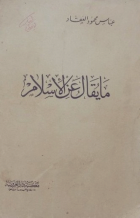 عباس محمود العقاد
ما يقال عن الإسلام